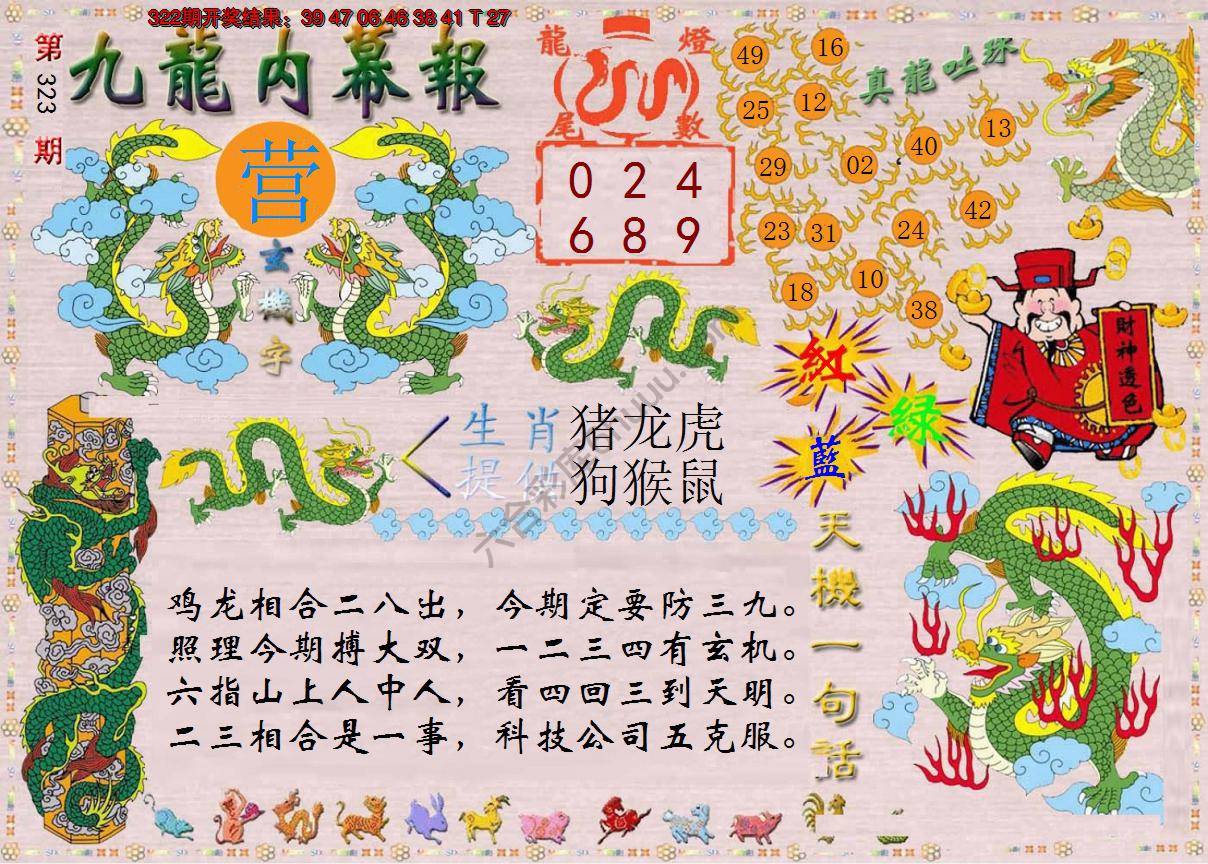 322期开奖结果：39 47 06 46 38 41 T 27
第323期
九龍内幕報
营
玄機字
龍燈
尾數
0 2 4
6 8 9
真龍吐珠
49 16
25 12
13
40
29 02
42
23 31 24
18 10
38
財神透色
紅
綠
藍
生肖 猪龙虎
提供 狗猴鼠
鸡龙相合二八出，今期定要防三九。
照理今期搏大双，一二三四有玄机。
六指山上人中人，看四回三到天明。
二三相合是一事，科技公司五克服。
天機一句話